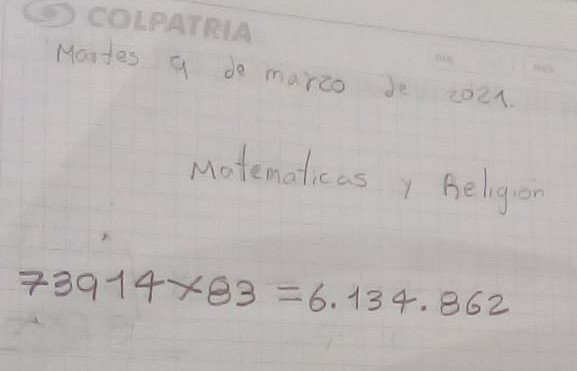 COLPATRIA
Martes 9 de marzo de 2021.
Matematicas y Religion
73914×83 = 6.134.862